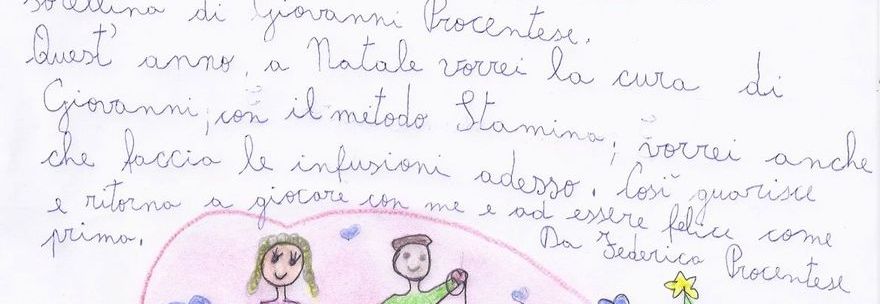 sorellina di Giovanni Procentese.
Quest' anno, a Natale vorrei la cura di
Giovanni, con il metodo Stamina; vorrei anche
che faccia le infusioni adesso. Così guarisce
e ritorna a giocare con me e ad essere felice come
prima.
Da Federica Procentese